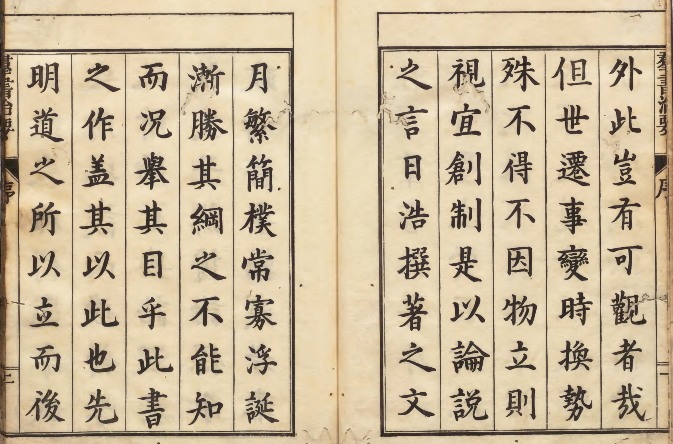 外此豈有可觀者哉
但世遷事變時換勢
殊不得不因物立則
視宜創制是以論説
之言日浩撰著之文
月繁簡樸常寡浮誕
漸勝其綱之不能知
而况舉其目乎此書
之作盖其以此也先
明道之所以立而後
羣書治要
序